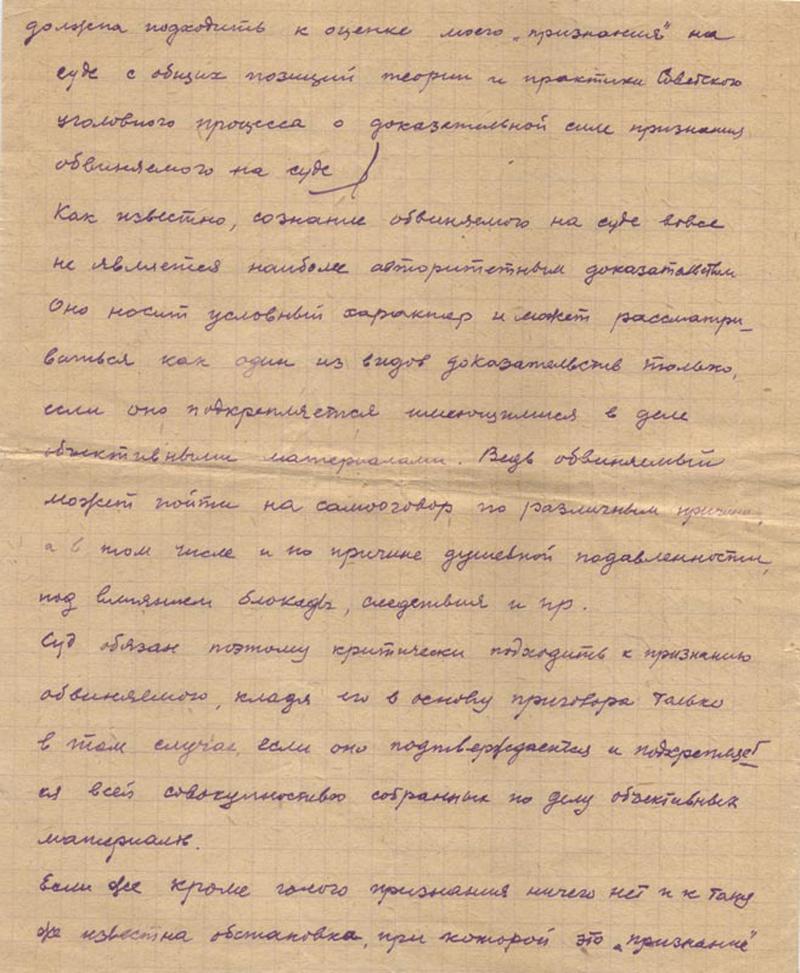 должна подходить к оценке моего „признания" на
суде с общих позиций теории и практики Советского
уголовного процесса о доказательной силе признания
обвиняемого на суде
Как известно, сознание обвиняемого на суде вовсе
не является наиболее авторитетным доказательством
Оно носит условный характер и может рассматри-
ваться как один из видов доказательств только,
если оно подкрепляется имеющимися в деле
объективными материалами. Ведь обвиняемый
может пойти на самооговор по различным причинам,
а в том числе и по причине душевной подавленности,
под влиянием блокады, следствия и пр.
Суд обязан поэтому критически подходить к признанию
обвиняемого, кладя его в основу приговора только
в том случае, если оно подтверждается и подкрепляет
ся всей совокупностью собранных по делу объективных
материалов.
Если же кроме голого признания ничего нет и к тому
же известна обстановка, при которой это „признание"